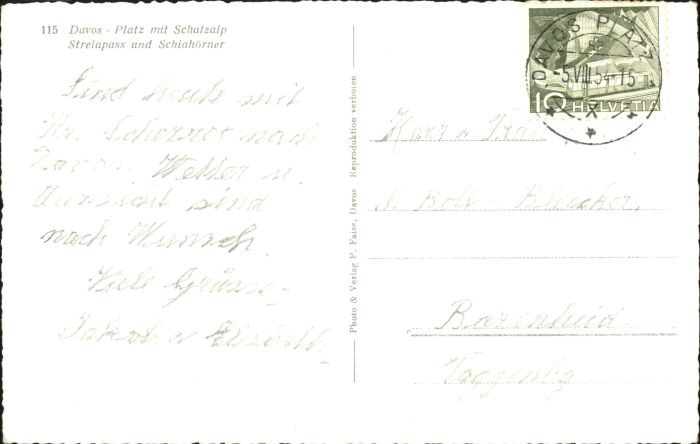 115 Davos - Platz mit Schatzalp
Strelapass und Schiahörner
Sind heute mit
Hr. Scherrer nach
Davos. Wetter u.
Aussicht sind
nach Wunsch.
Viele Grüsse
Jakob u Elisabeth
Photo & Verlag P. Faiss, Davos Reproduktion verboten
DAVOS PLATZ
-5.VIII.54-15
10 HELVETIA
Herr u Frau
Bolt -
Bazenheid
Toggenbg